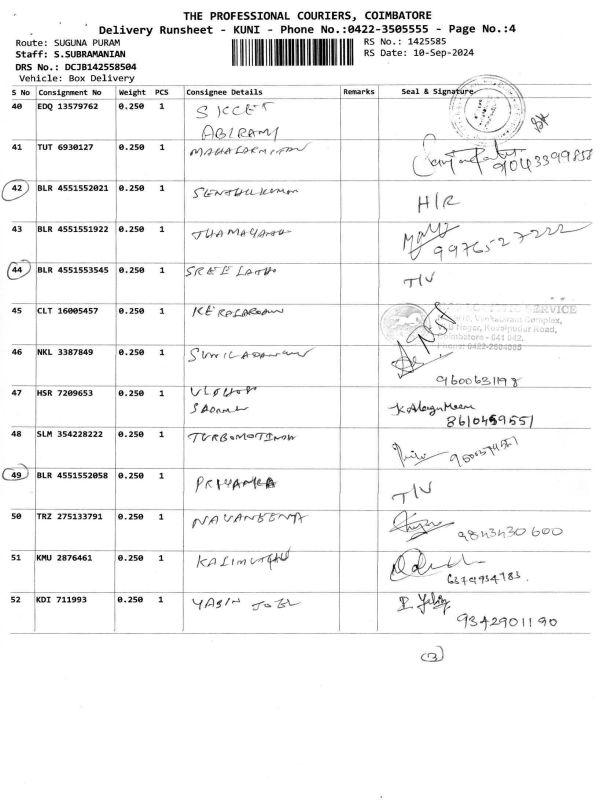 THE PROFESSIONAL COURIERS, COIMBATORE
Delivery Runsheet - KUNI - Phone No.:0422-3505555 - Page No.:4
Route: SUGUNA PURAM
RS No.: 1425585
Staff: S.SUBRAMANIAN
RS Date: 10-Sep-2024
DRS No.: DCJB142558504
Vehicle: Box Delivery
S No Consignment No Weight PCS Consignee Details Remarks Seal & Signature
40 EDQ 13579762 0.250 1 SKCET
ABIRAMI
41 TUT 6930127 0.250 1
42 BLR 4551552021 0.250 1 SENTHILKUMAR H/R
43 BLR 4551551922 0.250 1 9976527222
44 BLR 4551553545 0.250 1 SREE LATHA T/V
45 CLT 16005457 0.250 1
SERVICE
46 NKL 3387849 0.250 1
9600631198
47 HSR 7209653 0.250 1
8610459551
48 SLM 354228222 0.250 1
49 BLR 4551552058 0.250 1 PRIYANKA T/V
50 TRZ 275133791 0.250 1 NAVANEETHA 9843430600
51 KMU 2876461 0.250 1 KALIMUTHU
6379934783.
52 KDI 711993 0.250 1 YABIN JOEL
9342901190
(13)